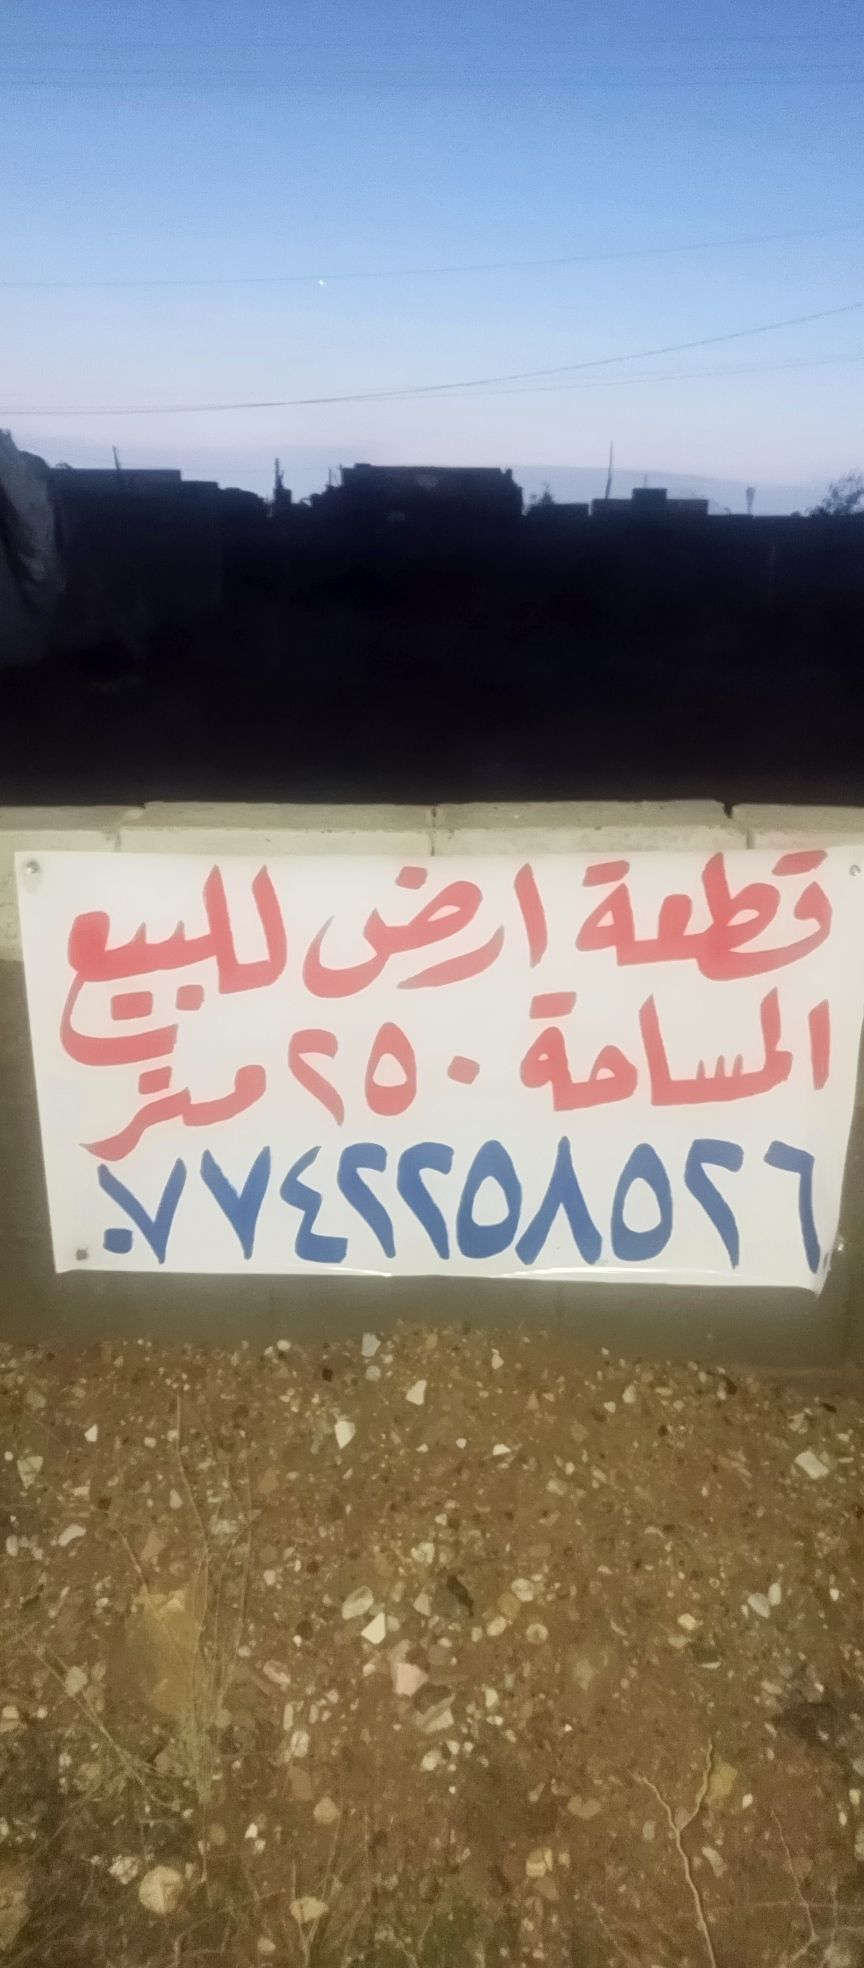 قطعة ارض للبيع
المساحة ٢٥٠ متر
٠٧٧٤٢٢٥٨٥٢٦